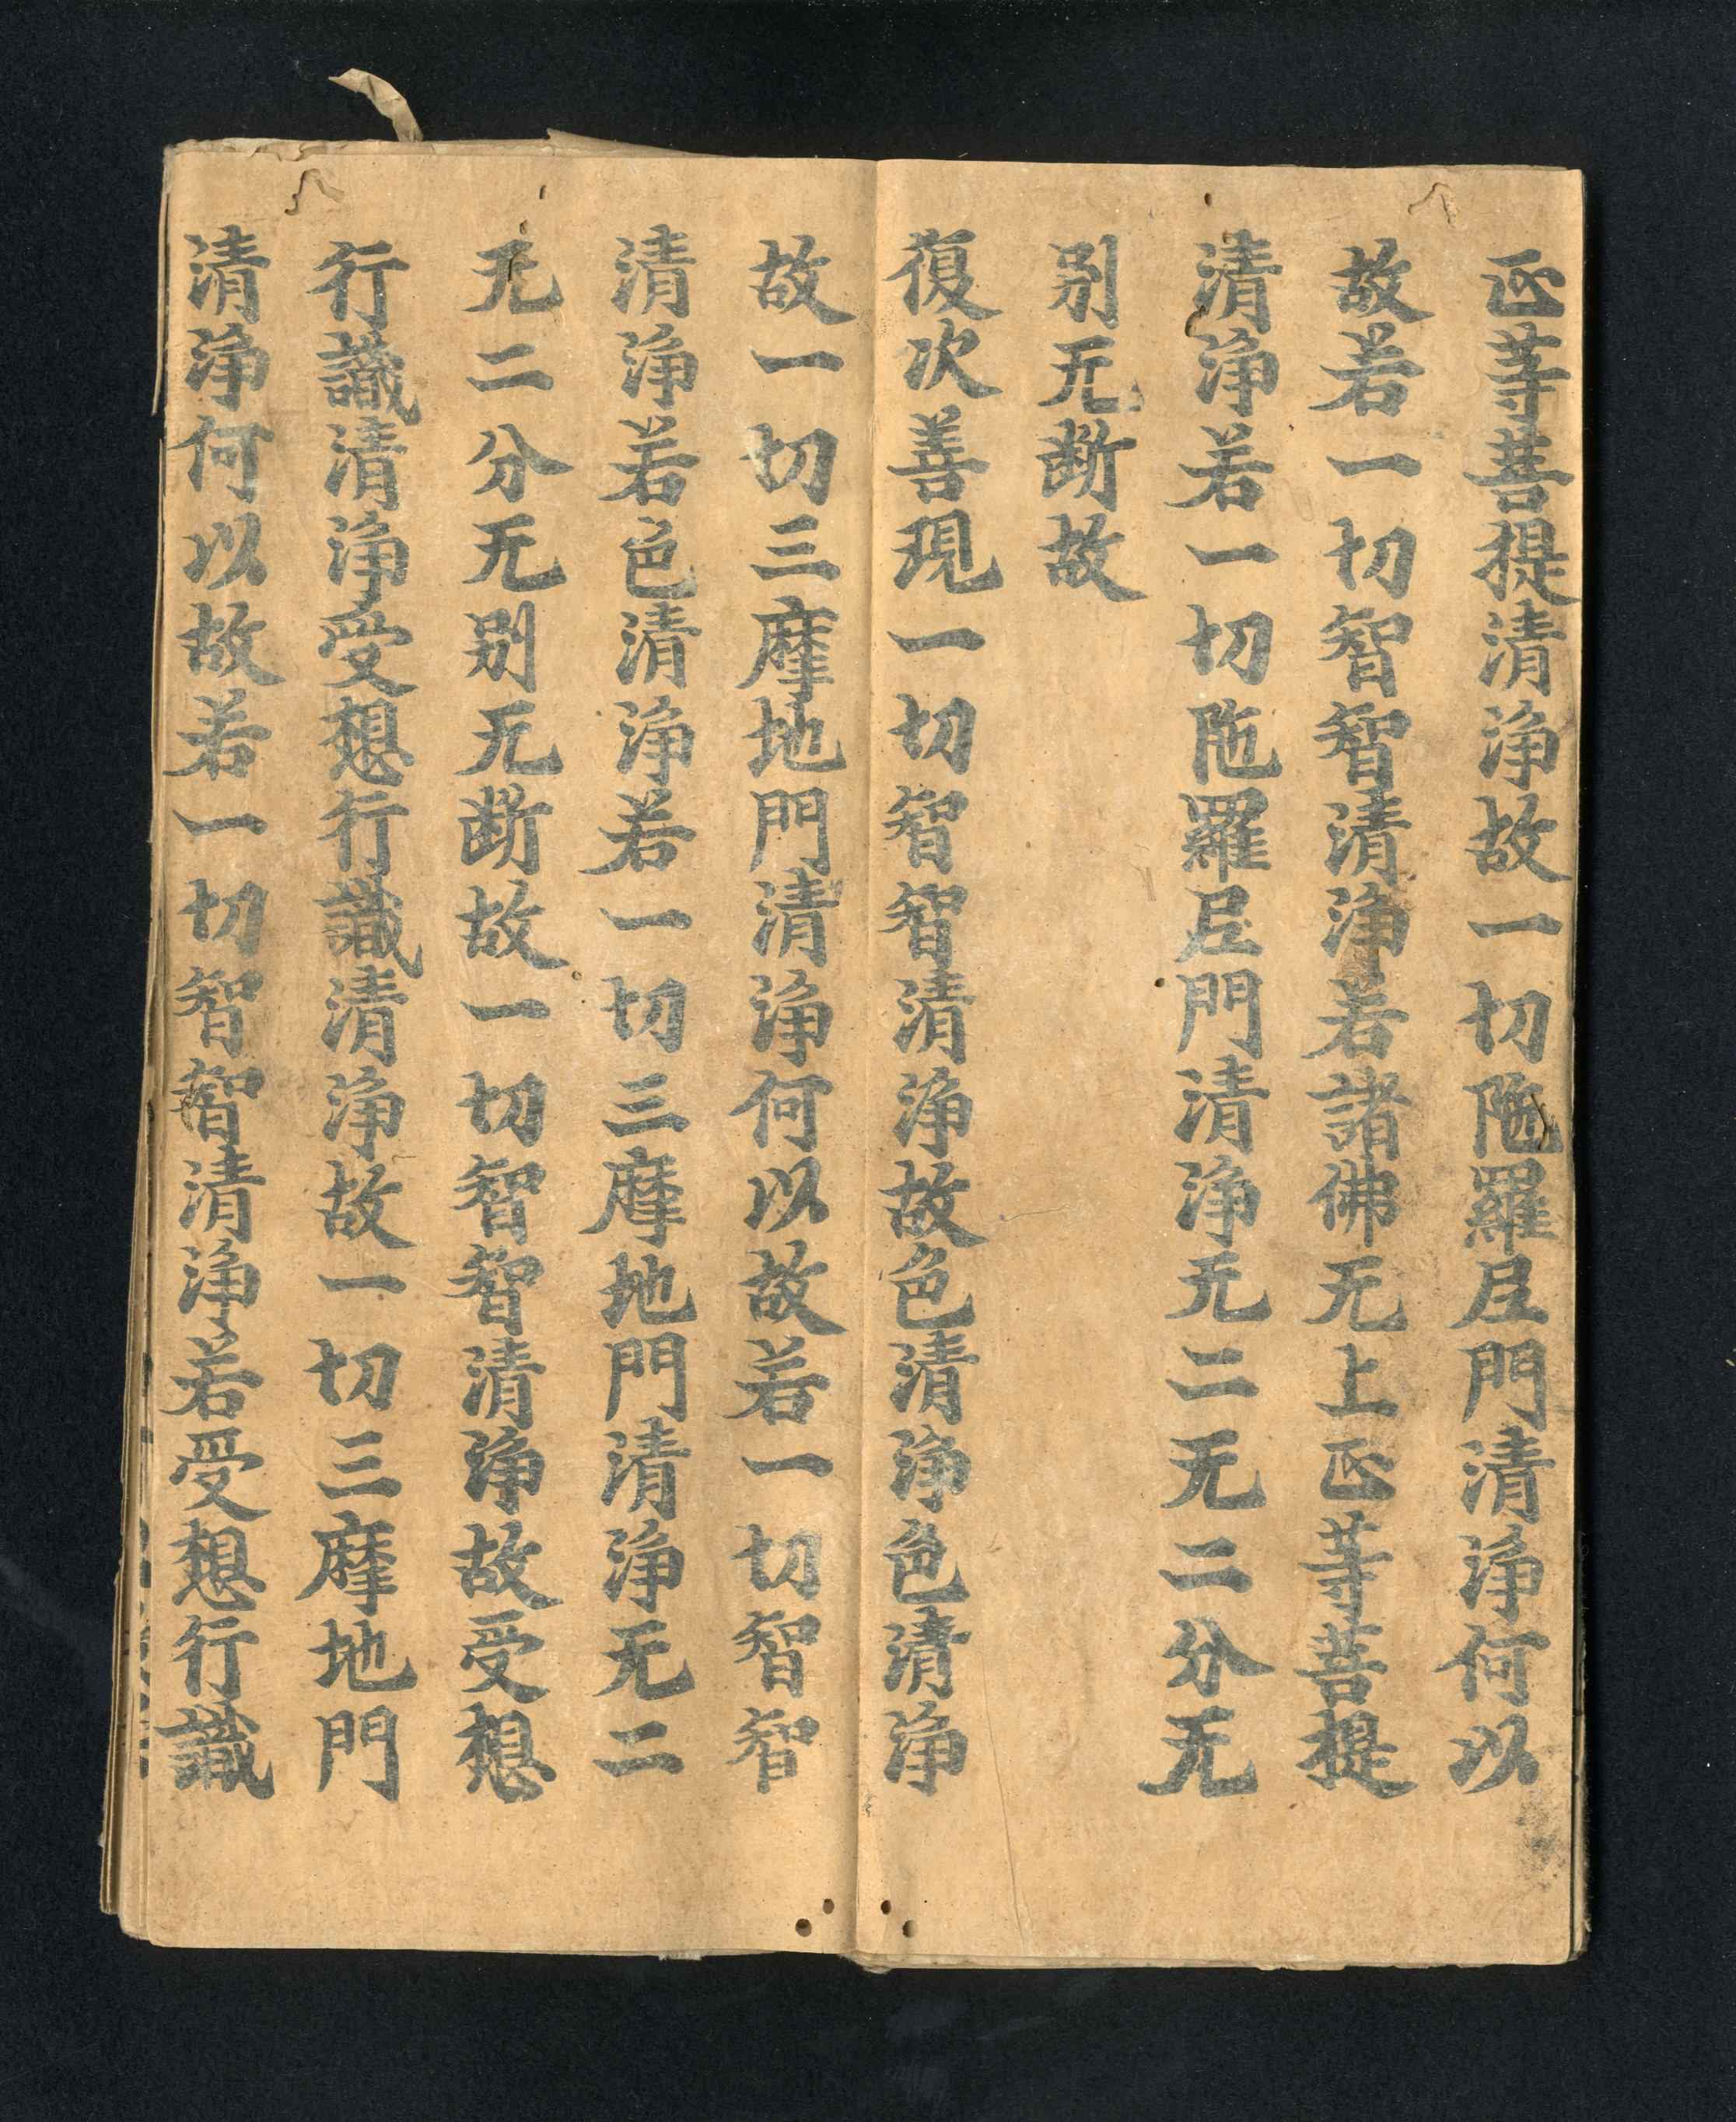 正等菩提清淨故一切陁羅𡰱門清淨何以
故若一切智智清淨若諸佛无上正等菩提
清淨若一切陁羅𡰱門清淨无二无二分无
別无断故
復次善現一切智智清淨故色清淨色清淨
故一切三摩地門清淨何以故若一切智智
清淨若色清淨若一切三摩地門清淨无二
无二分无別无断故一切智智清淨故受想
行識清淨受想行識清淨故一切三摩地門
清淨何以故若一切智智清淨若受想行識